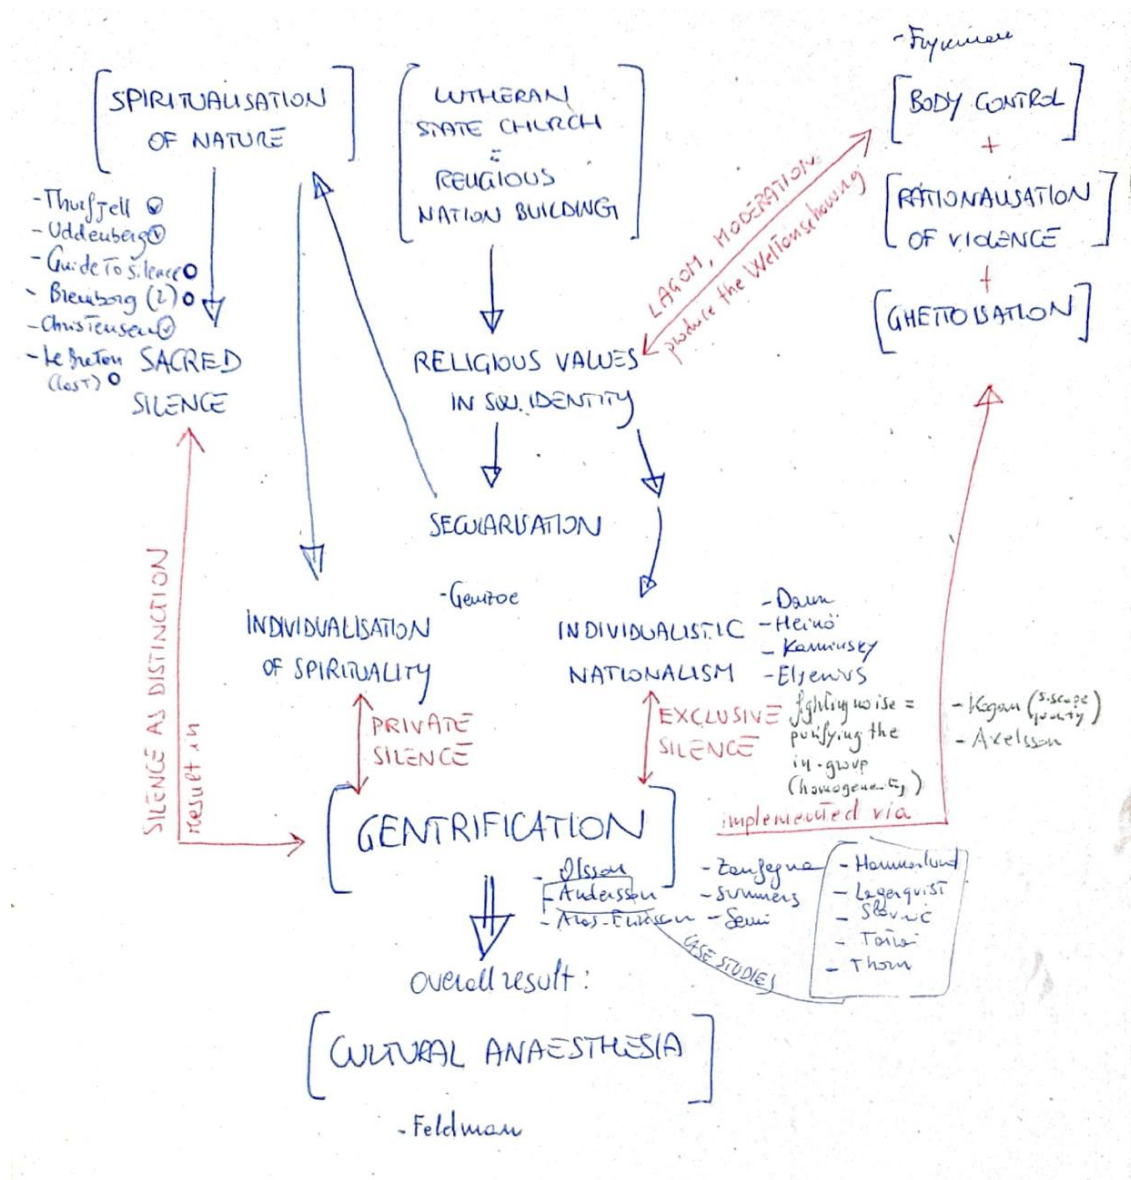 - Frykman
SPIRITUALISATION
OF NATURE
LUTHERAN
STATE CHURCH
=
RELIGIOUS
NATION BUILDING
BODY CONTROL
+
RATIONALISATION
OF VIOLENCE
+
GHETTOISATION
- Thurfjell
- Uddenberg
- Guide To Silence
- Bremborg (2)
- Christensen
- Le Breton
(last)
SACRED
SILENCE
LAGOM, MODERATION
produce the Weltanschauung
RELIGIOUS VALUES
IN SW. IDENTITY
SECULARISATION
SILENCE AS DISTINCTION
result in
INDIVIDUALISATION
OF SPIRITUALITY
- Gemzoe
INDIVIDUALISTIC
NATIONALISM
- Daun
- Heinö
- Kaminsky
- Elgenius
PRIVATE
SILENCE
EXCLUSIVE
SILENCE
fighting noise =
purifying the
in-group
(homogeneity)
- Kogan (s.scape
- Axelsson
implemented via
GENTRIFICATION
- Olsson
- Andersson
- Zangegna
- Summers
- Semi
- Hammarlund
- Lagerqvist
- Thörn
CASE STUDIES
Overall result:
CULTURAL ANAESTHESIA
- Feldman